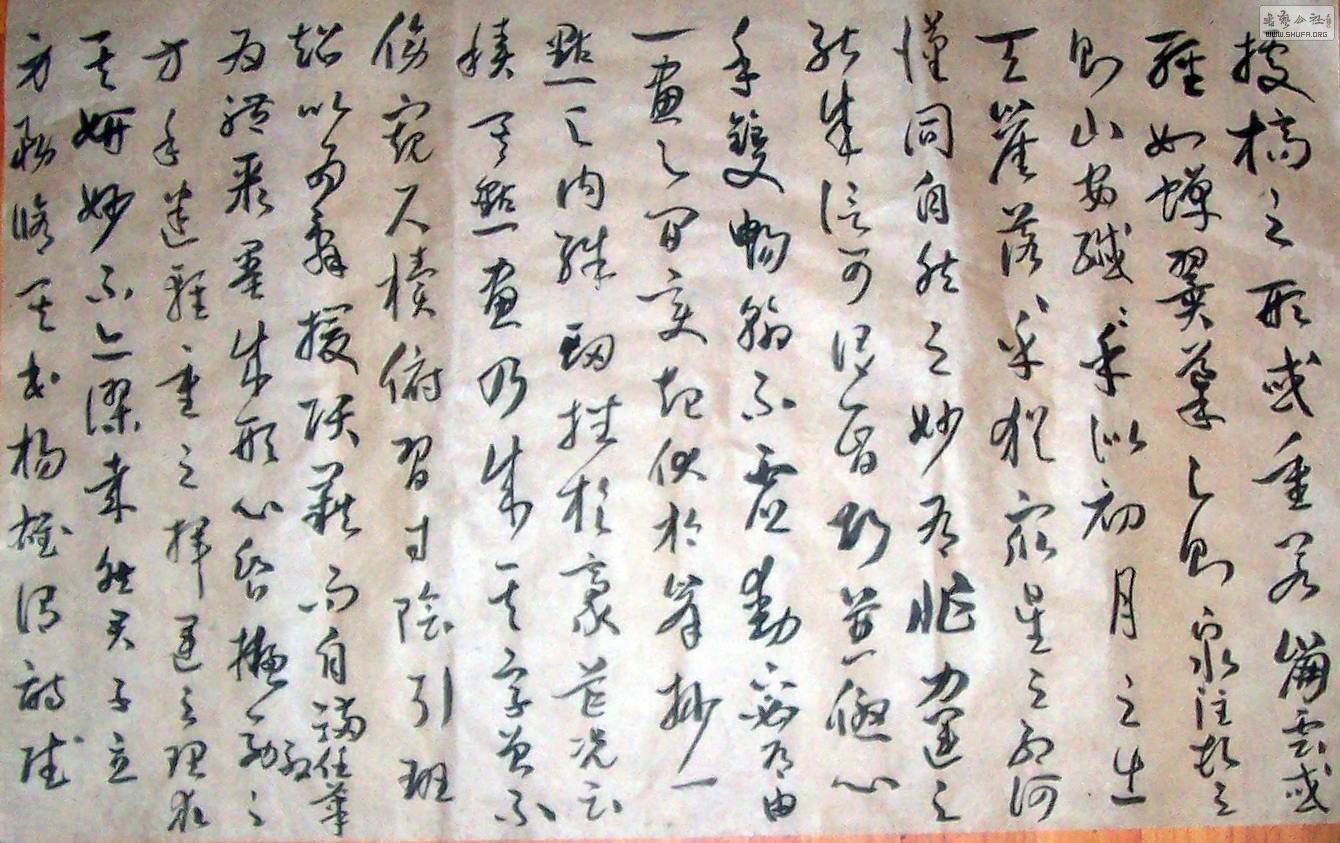 據槁之形或重若崩雲或
輕如蟬翼導之則泉注頓之
則山安纖纖乎似初月之出
天崖落落乎猶衆星之列河
漢同自然之妙有非力運之
能成信可謂智巧兼優心
手雙暢翰不虛動下必有由
一畫之間變起伏於峯杪一
點之內殊衄挫於豪芒況云
積其點畫乃成其字曾不
傍窺尺櫝俯習寸陰引班
超以為辭援項籍而自滿任筆
為體聚墨成形心昏擬效之
方手迷輕重之揮運之理求
其妍妙不亦謬哉然君子立
身務修其本楊雄謂詩賦
WWW.SHUFA.ORG